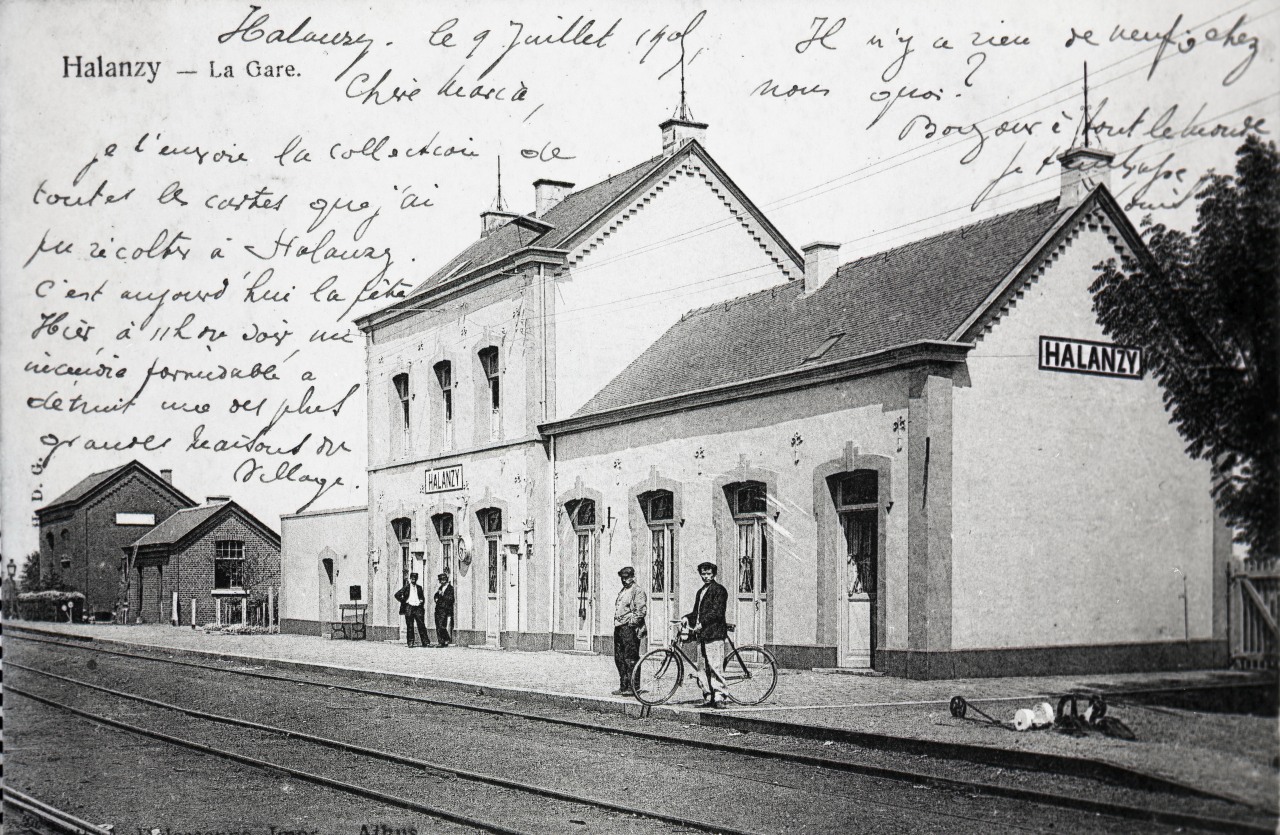 Halanzy — La Gare.
Halanzy. le 9 Juillet
Chère Maria,
je t'envoie la collection de
toutes les cartes que j'ai
pu récolter à Halanzy.
C'est aujourd'hui la fête
Hier à 11h du soir, un
incendie formidable a
détruit une des plus
grandes maisons du
Village.
Il n'y a rien de neuf chez
nous quoi?
Bonjour à tout le monde
Je t'embrasse
HALANZY
HALANZY
D. G.
Athus